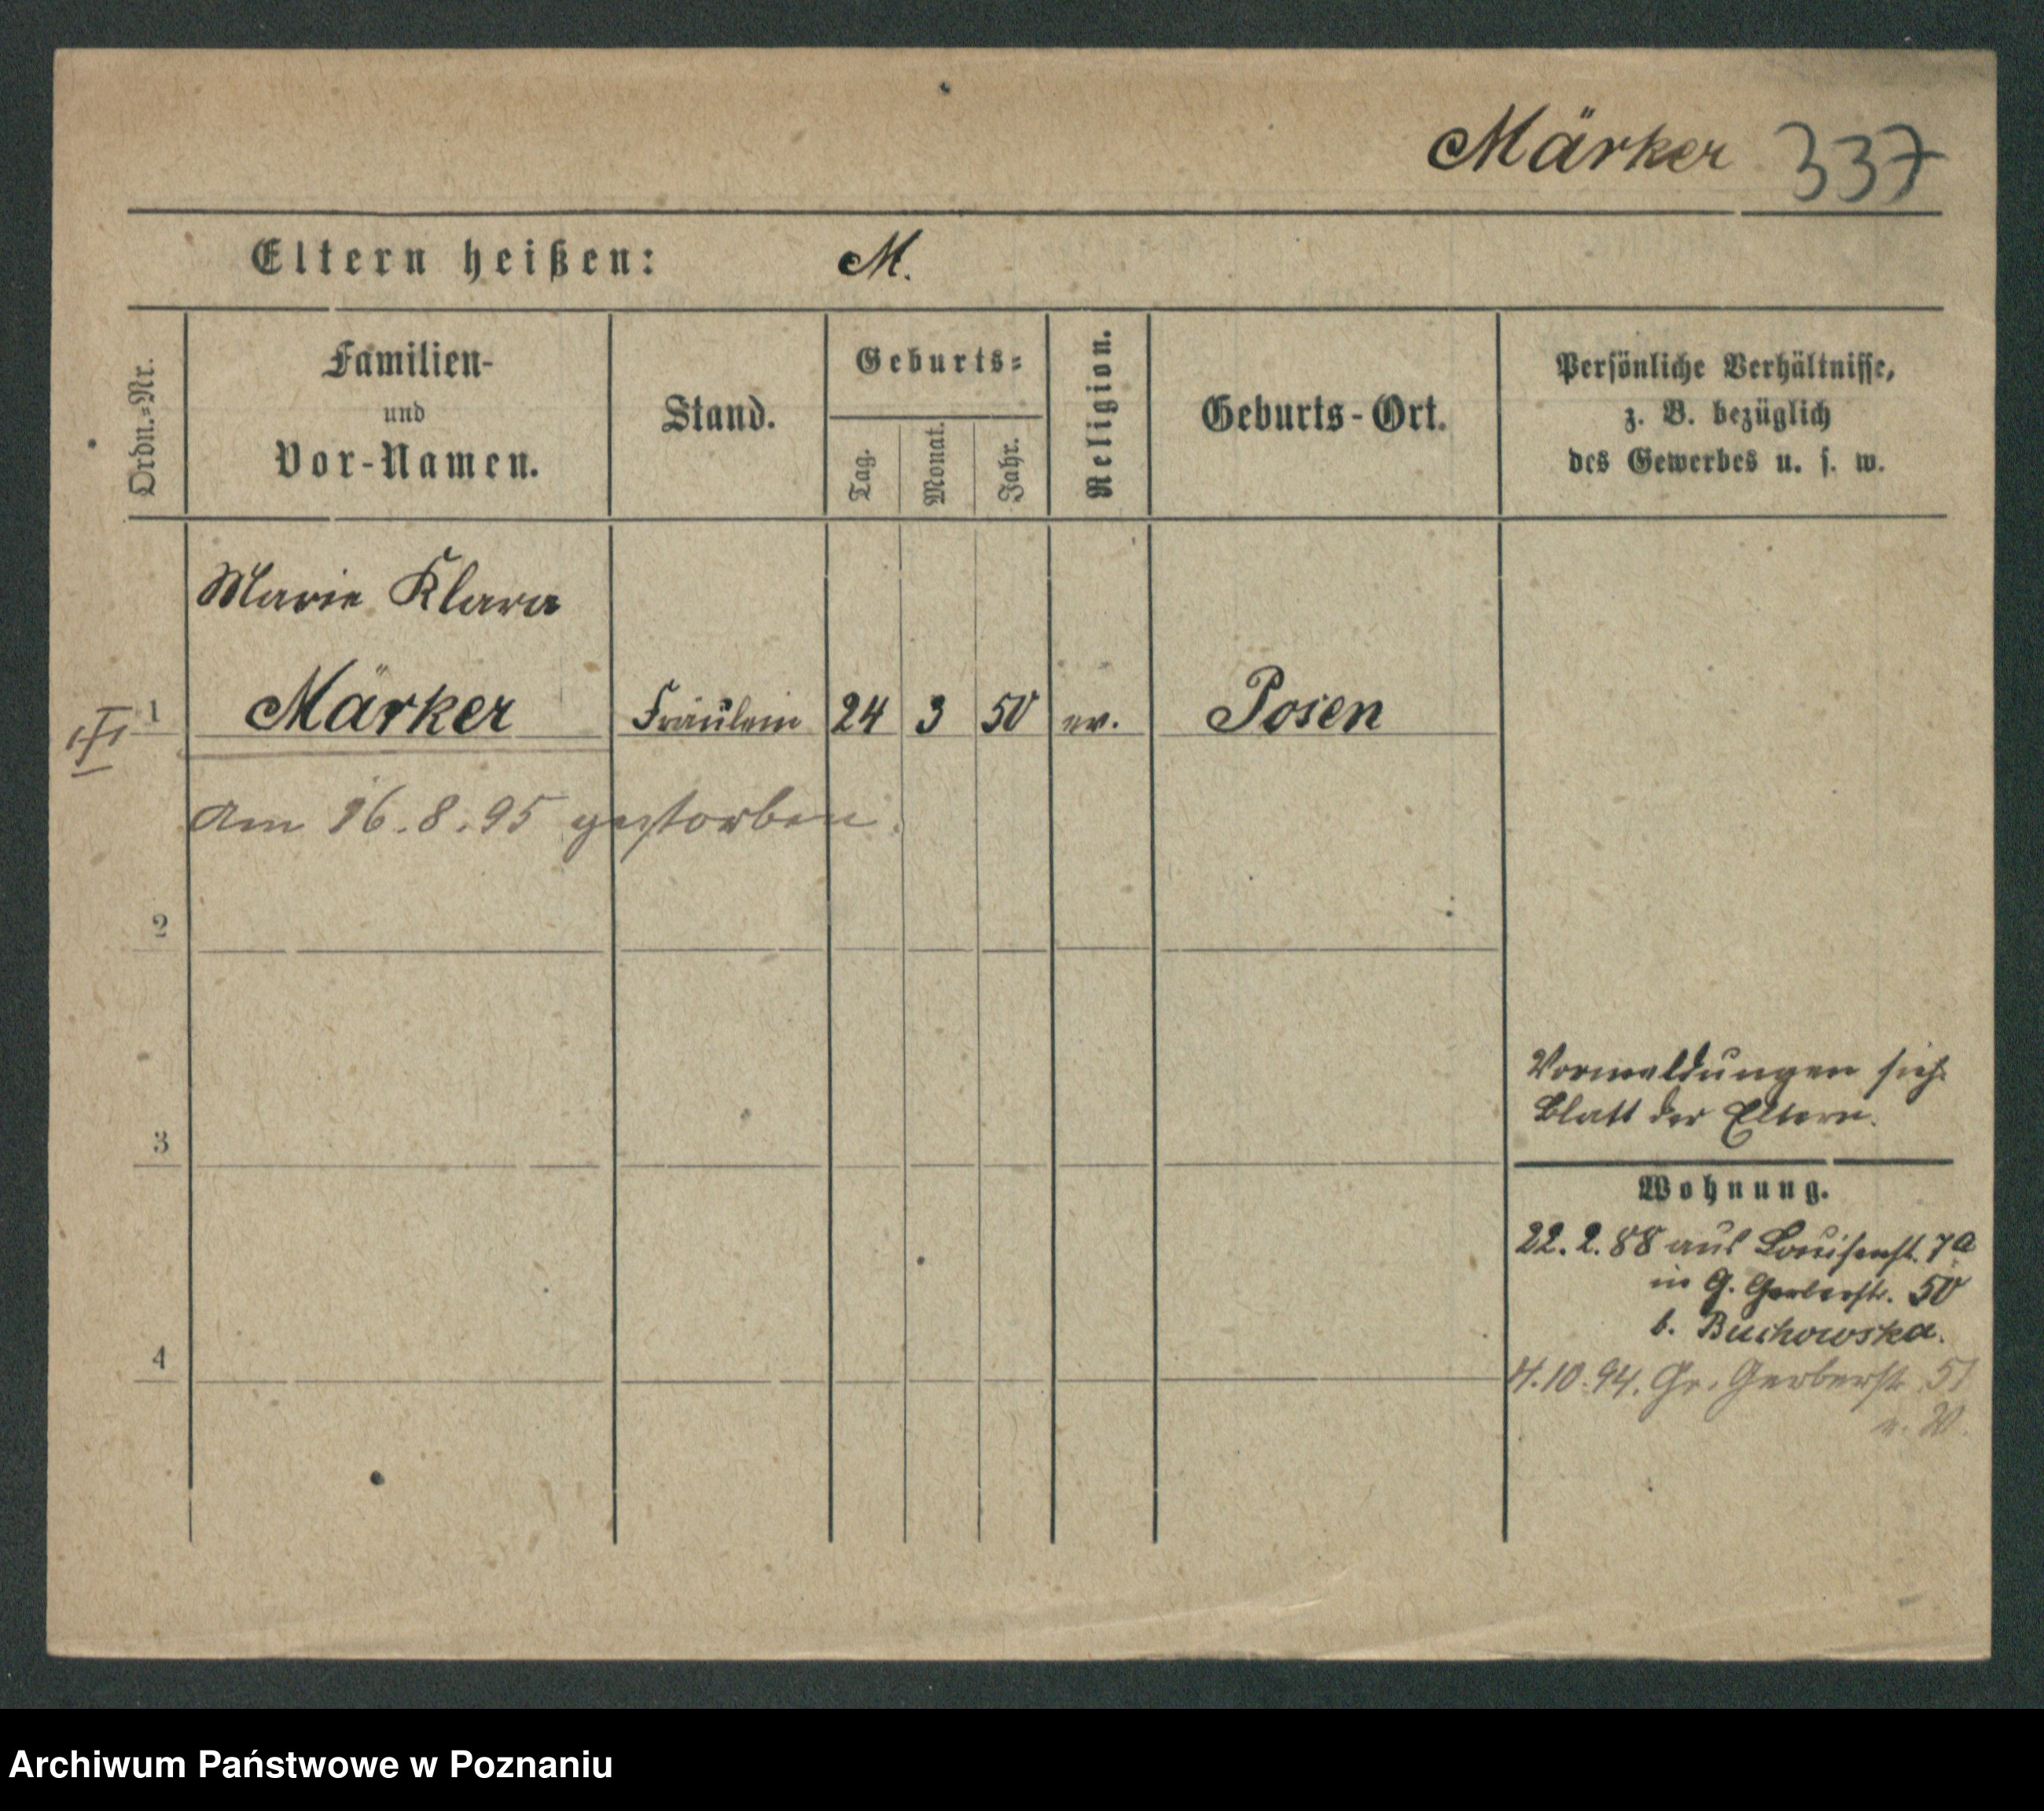 Märker 337
Eltern heißen: M.
Ordn.=Nr.
Familien-
und
Vor-Namen.
Stand.
Geburts=
Tag.
Monat.
Jahr.
Religion.
Geburts-Ort.
Persönliche Verhältnisse,
z. B. bezüglich
des Gewerbes u. s. w.
Marie Klara
1 Märker Fräulein 24 3 50 ev. Posen
am 16.8.95 gestorben.
2
3
4
Vormeldungen sieh
Blatt der Eltern.
Wohnung.
22. 2. 88 aus Louisenst. 7a
in G. Gerberstr. 50
b. Buchowska.
4.10.94. Gr. Gerberstr. 51
Archiwum Państwowe w Poznaniu